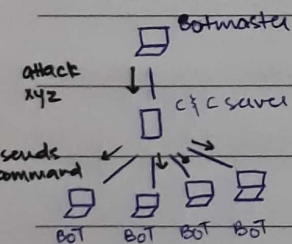 Botmaster
attack
xyz
C & C server
sends
command
BOT BOT BOT BOT